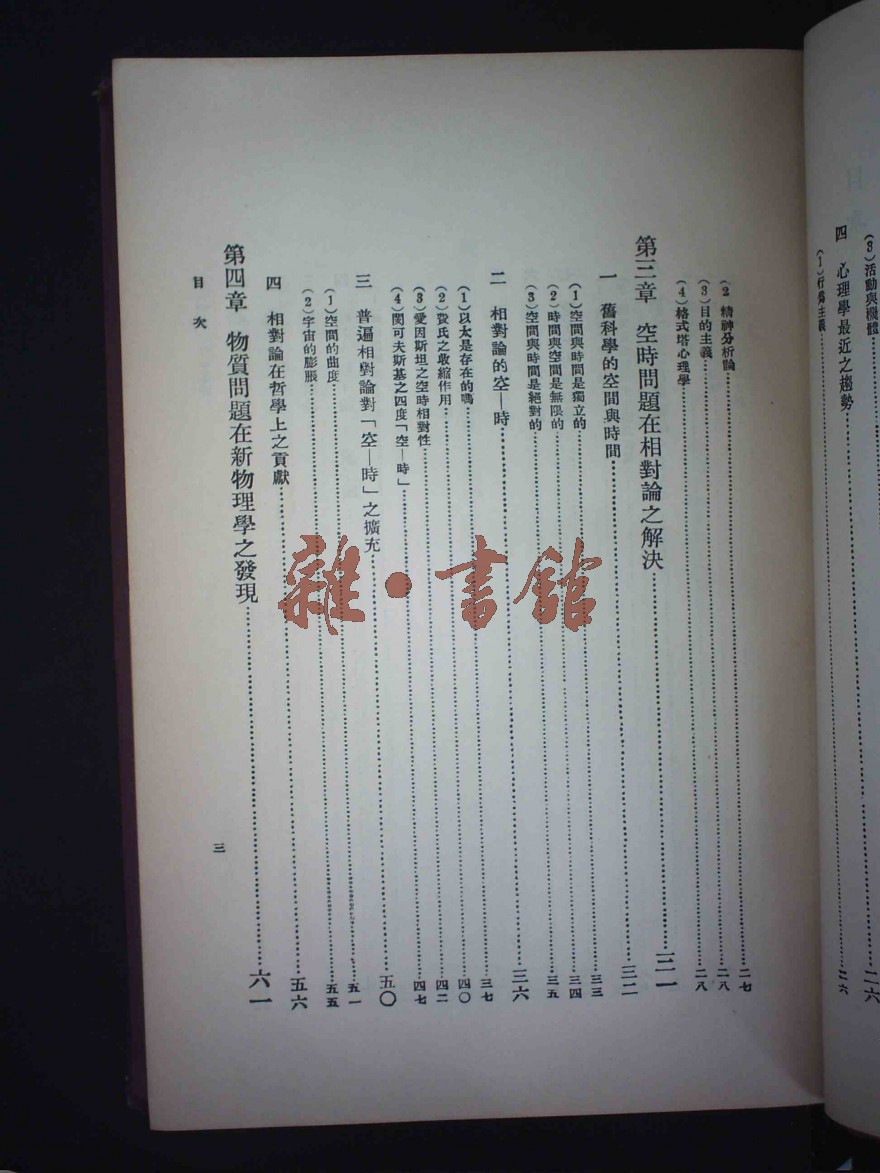 (3)活動與機體……二六
四 心理學最近之趨勢
(1)行爲主義……二六
(2)精神分析論……二七
(3)目的主義……二八
(4)格式塔心理學……二八
第三章 空時問題在相對論之解決……三一
一 舊科學的空間與時間……三二
(1)空間與時間是獨立的……三三
(2)時間與空間是無限的……三四
(3)空間與時間是絕對的……三五
二 相對論的空—時……三六
(1)以太是存在的嗎……三七
(2)費氏之收縮作用……四〇
(3)愛因斯坦之空時相對性……四二
(4)閔可夫斯基之四度「空—時」……四七
三 普遍相對論對「空—時」之擴充……五〇
(1)空間的曲度……五一
(2)宇宙的膨脹……五五
四 相對論在哲學上之貢獻……五六
第四章 物質問題在新物理學之發現……六一
目次
三
雜·書館